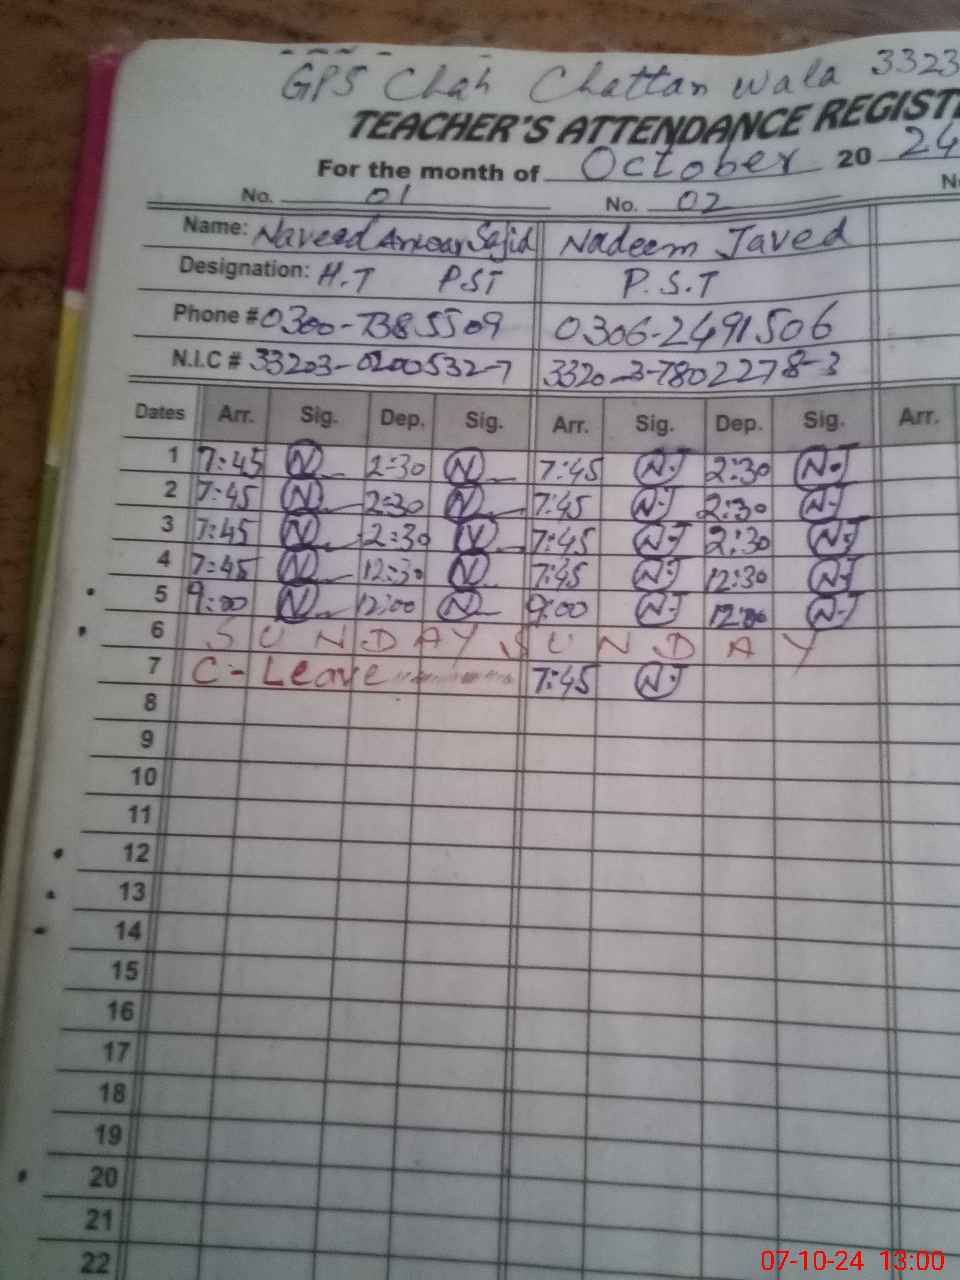 GPS Chah Chattan wala 3323
TEACHER'S ATTENDANCE REGIST
For the month of October 20 24
No. 01 No. 02 N
Name: Naveed Anwar Sajid Nadeem Javed
Designation: H.T PST P.S.T
Phone # 0300-7385509 0306-2491506
N.I.C # 33203-0200532-7 33203-7802278-3
Dates Arr. Sig. Dep. Sig. Arr. Sig. Dep. Sig. Arr.
1 7:45 N 2:30 N 7:45 N.J 2:30 N.J
2 7:45 N 2:30 N 7:45 N.J 2:30 N.J
3 7:45 N 2:30 N 7:45 N.J 2:30 N.J
4 7:45 N 12:30 N 7:45 N.J 12:30 N.J
5 9:00 N 12:00 N 9:00 N.J 12:00 N.J
6 SUNDAY SUNDAY
7 C-Leave 7:45 N.J
8
9
10
11
12
13
14
15
16
17
18
19
20
21
22
07-10-24 13:00